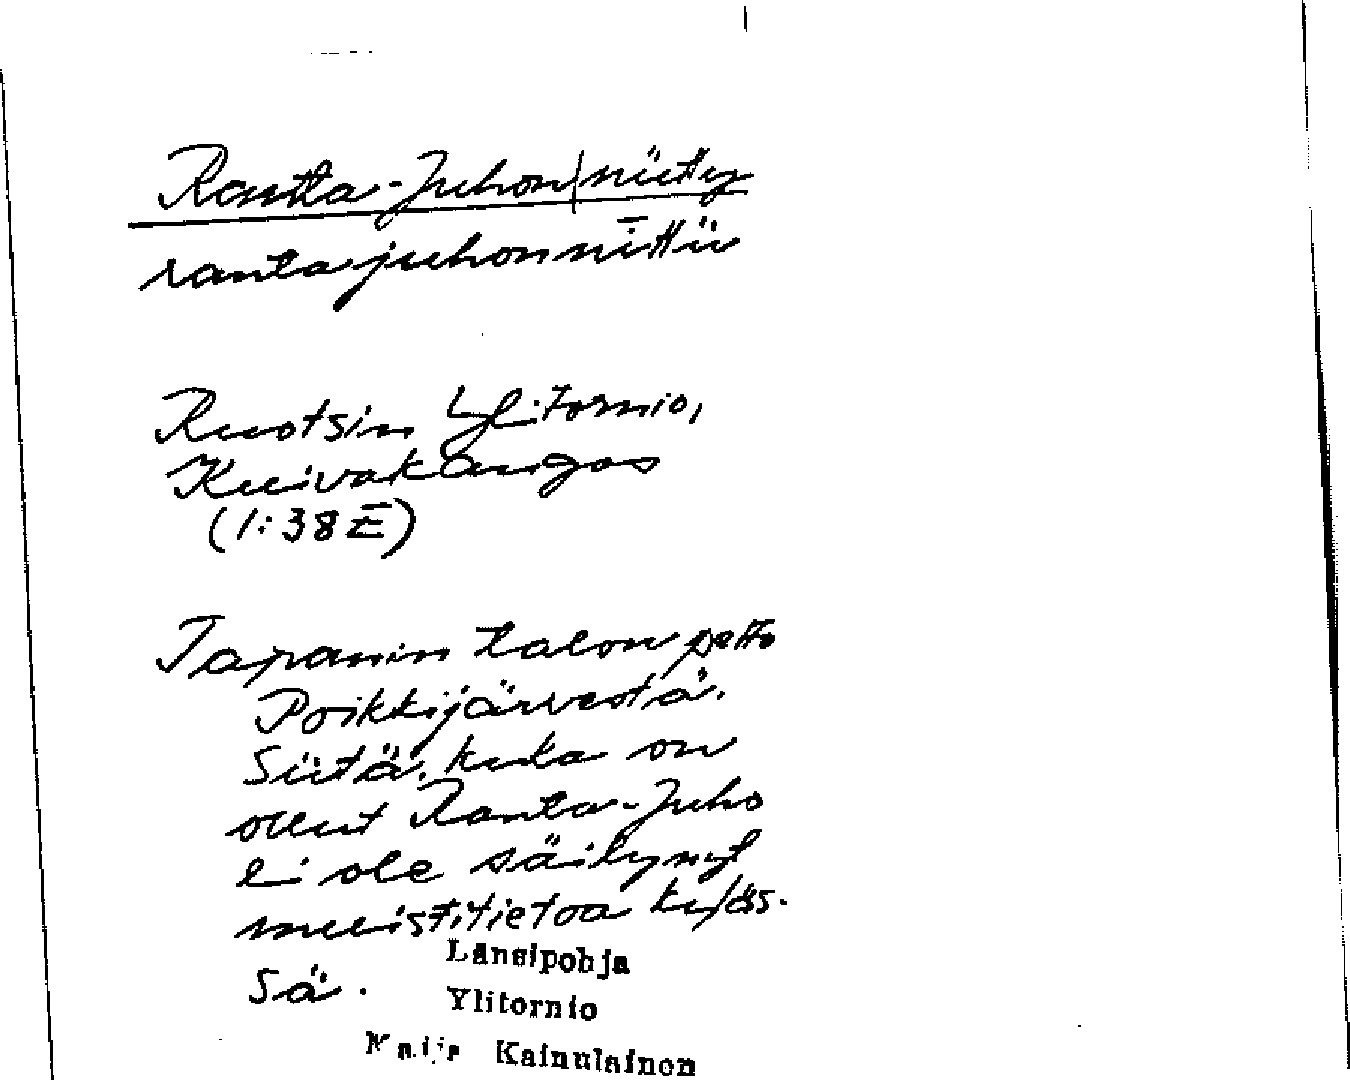 Ranta-Juhon|niitty
rantajuhonnīttü
Ruotsin Ylitornio,
Kuivakangas
(1:38E)
Tapanin talon pelto
Poikkijärvestä.
Siitä, kuka on
ollut Ranta-Juho
ei ole säilynyt
muistitietoa kyläs-
sä.
Länsipohja
Ylitornio
Maija Kainulainen